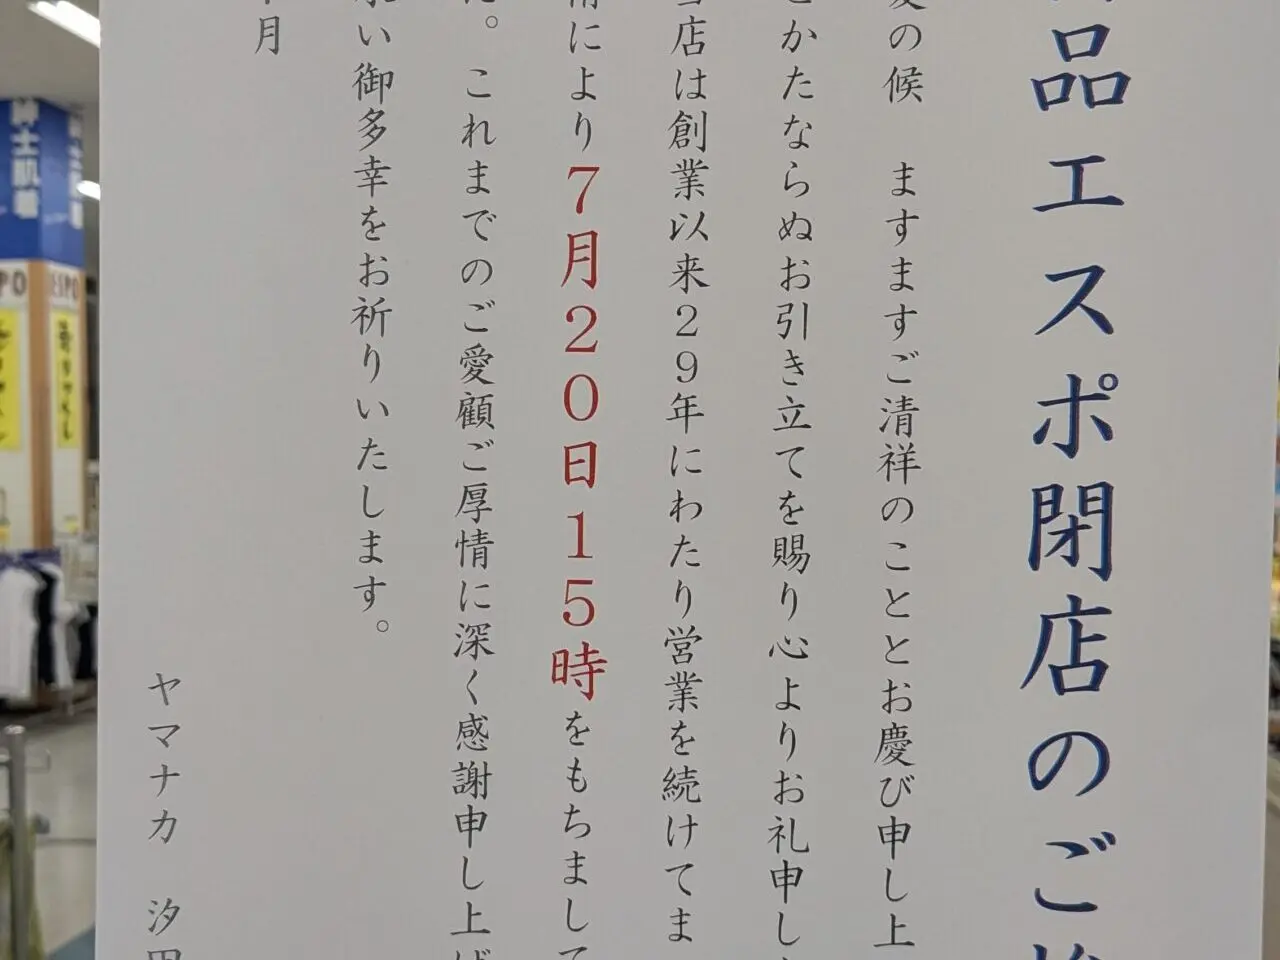 品エスポ閉店のご
の候　ますますご清祥のこととお慶び申し上
かたならぬお引き立てを賜り心よりお礼申し
店は創業以来29年にわたり営業を続けてま
情により7月20日15時をもちまして
。これまでのご愛顧ご厚情に深く感謝申し上げ
い御多幸をお祈りいたします。
月
ヤマナカ　汐田
紳士肌着